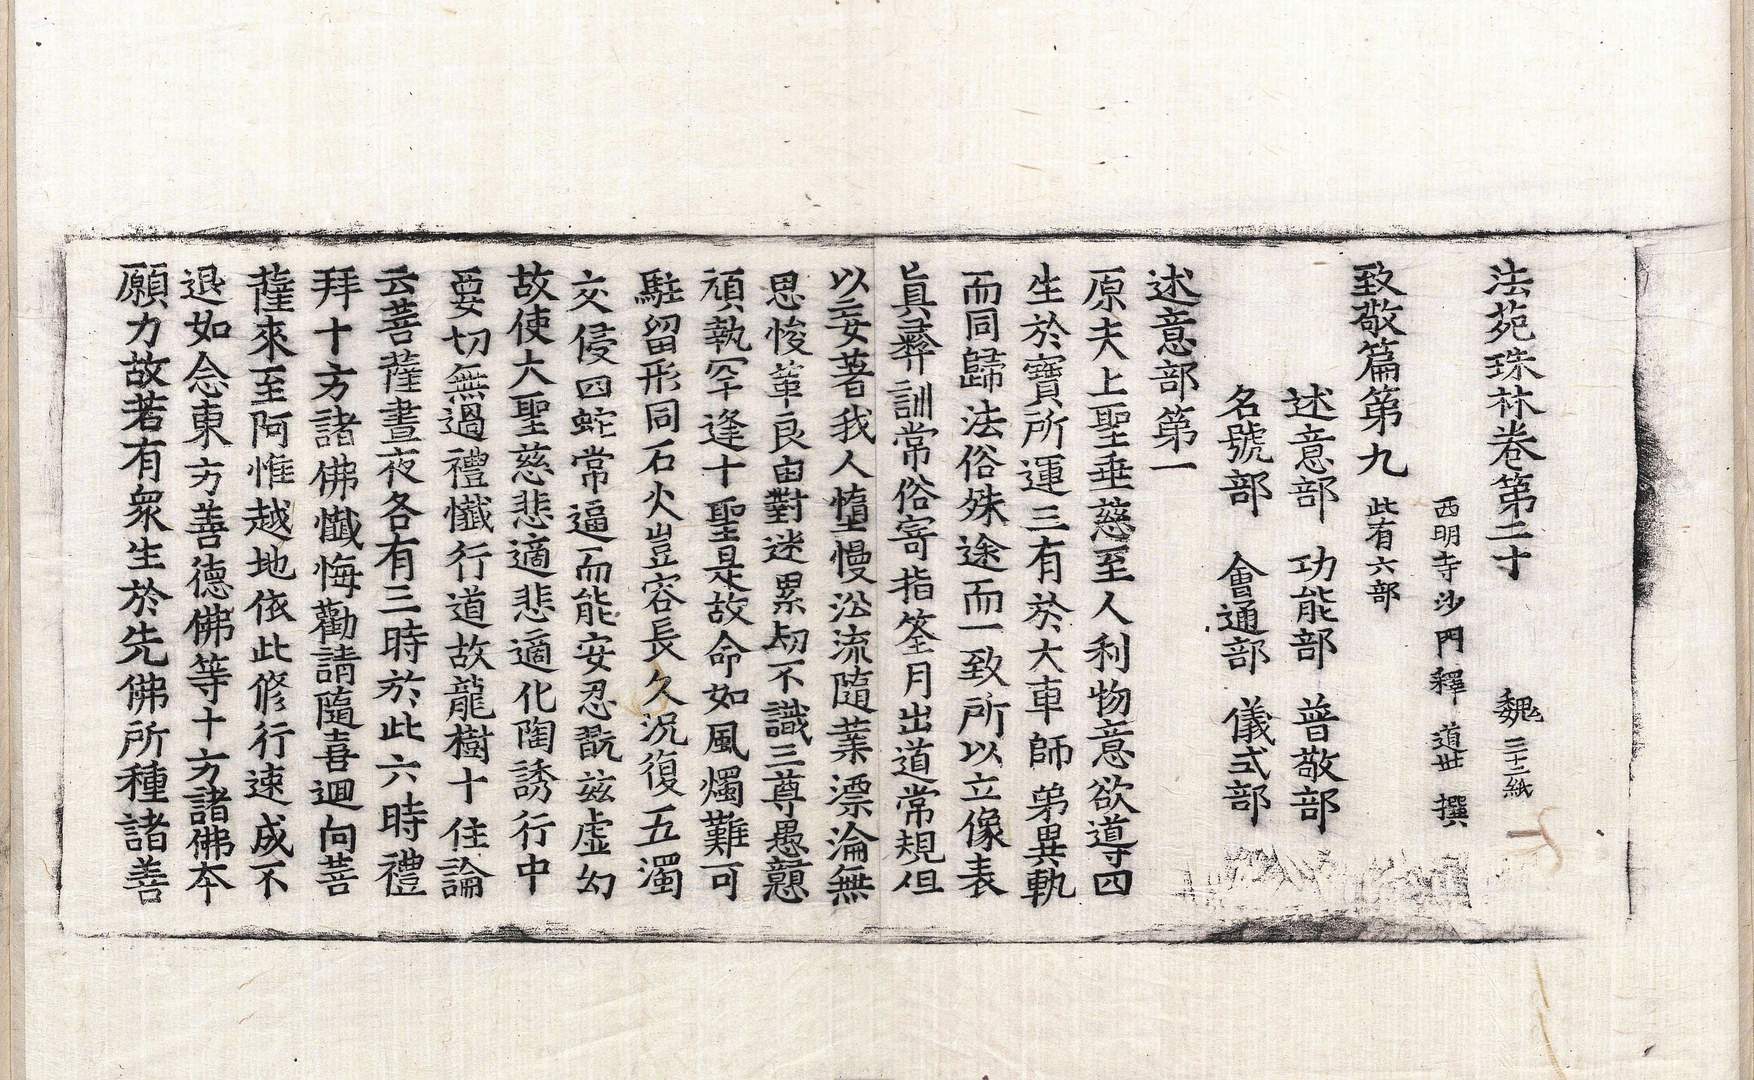 法苑珠林卷第二十 魏 三十二紙
西明寺沙門釋 道世 撰
致敬篇第九 此有六部
述意部 功能部 普敬部
名號部 會通部 儀式部
述意部第一
原夫上聖垂慈至人利物意欲導四
生於寶所運三有於大車師弟異軌
而同歸法俗殊途而一致所以立像表
眞彝訓常俗寄指筌月出道常規但
以妄著我人憍慢沿流隨業漂淪無
思悛革良由對迷累劫不識三尊愚戇
頑執罕逢十聖是故命如風燭難可
駐留形同石火豈容長久況復五濁
交侵四蛇常逼而能安忍翫茲虛幻
故使大聖慈悲適悲適化陶誘行中
要切無過禮懺行道故龍樹十住論
云菩薩晝夜各有三時於此六時禮
拜十方諸佛懺悔勸請隨喜迴向菩
薩來至阿惟越地依此修行速成不
退如念東方善德佛等十方諸佛本
願力故若有衆生於先佛所種諸善